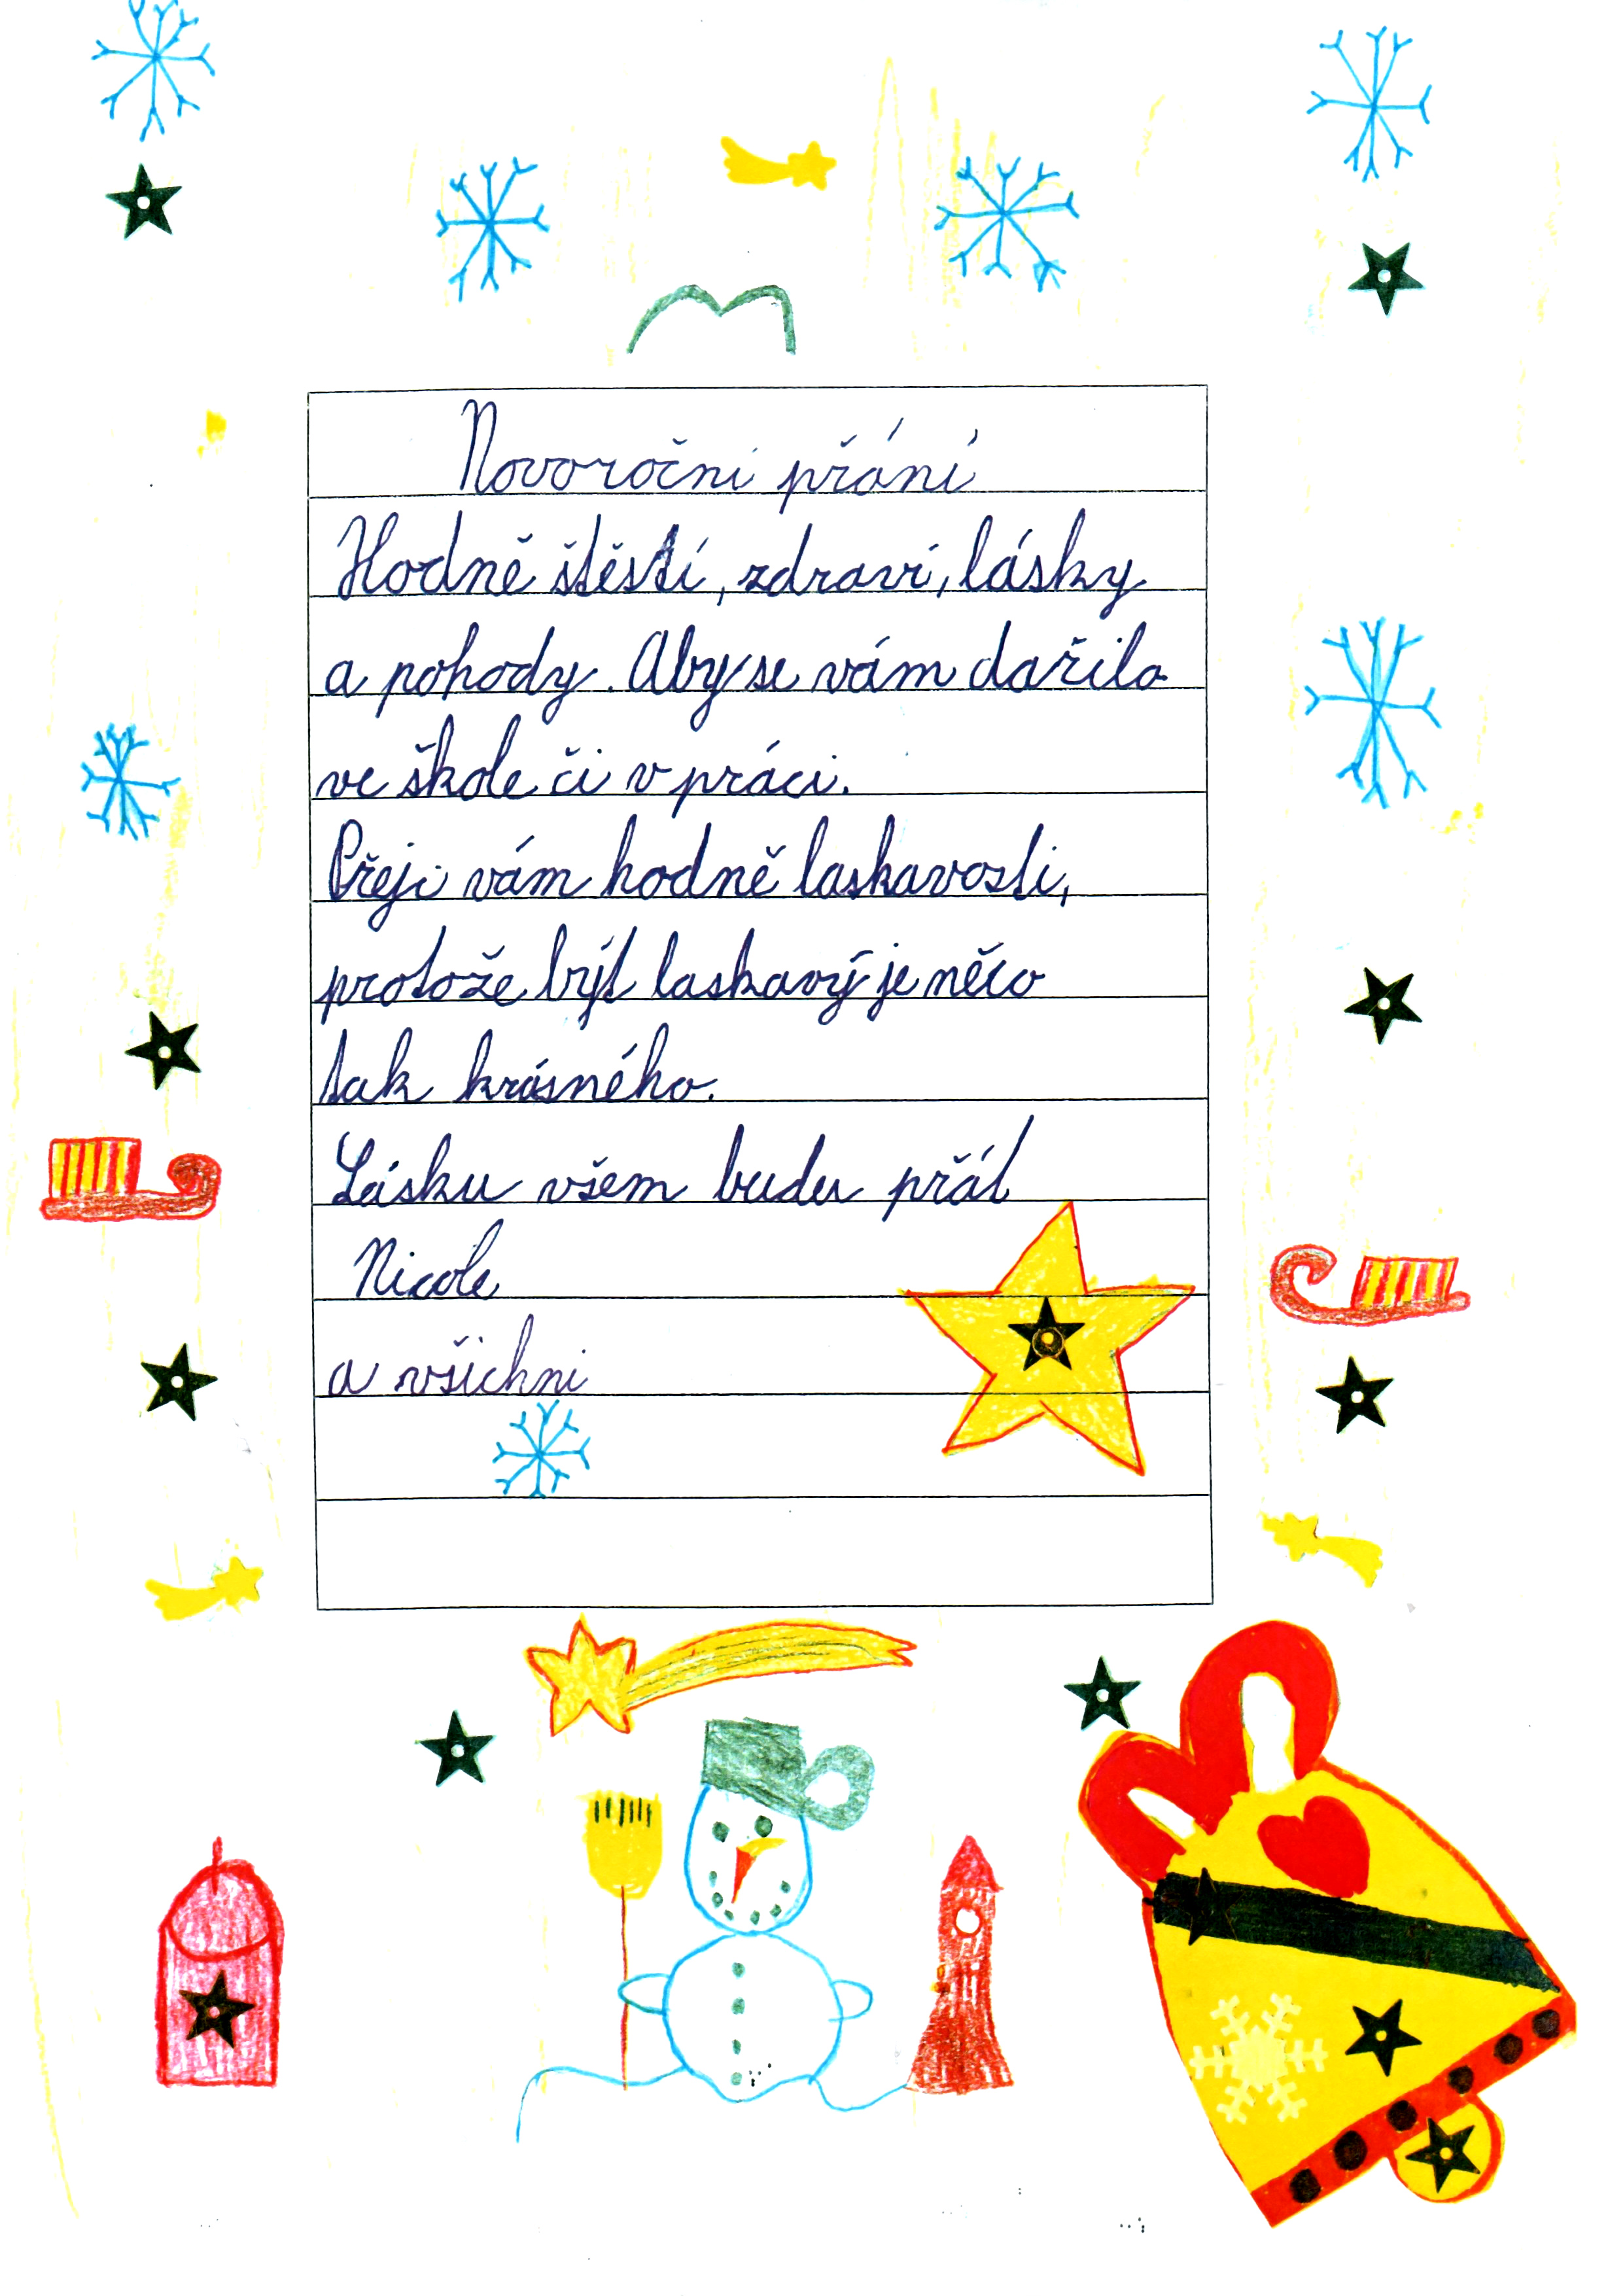 Novoroční přání
Hodně štěstí, zdraví, lásky
a pohody. Aby se vám dařilo
ve škole či v práci.
Přeji vám hodně laskavosti,
protože být laskavý je něco
tak krásného.
Lásku všem budu přát
Nicole
a všichni